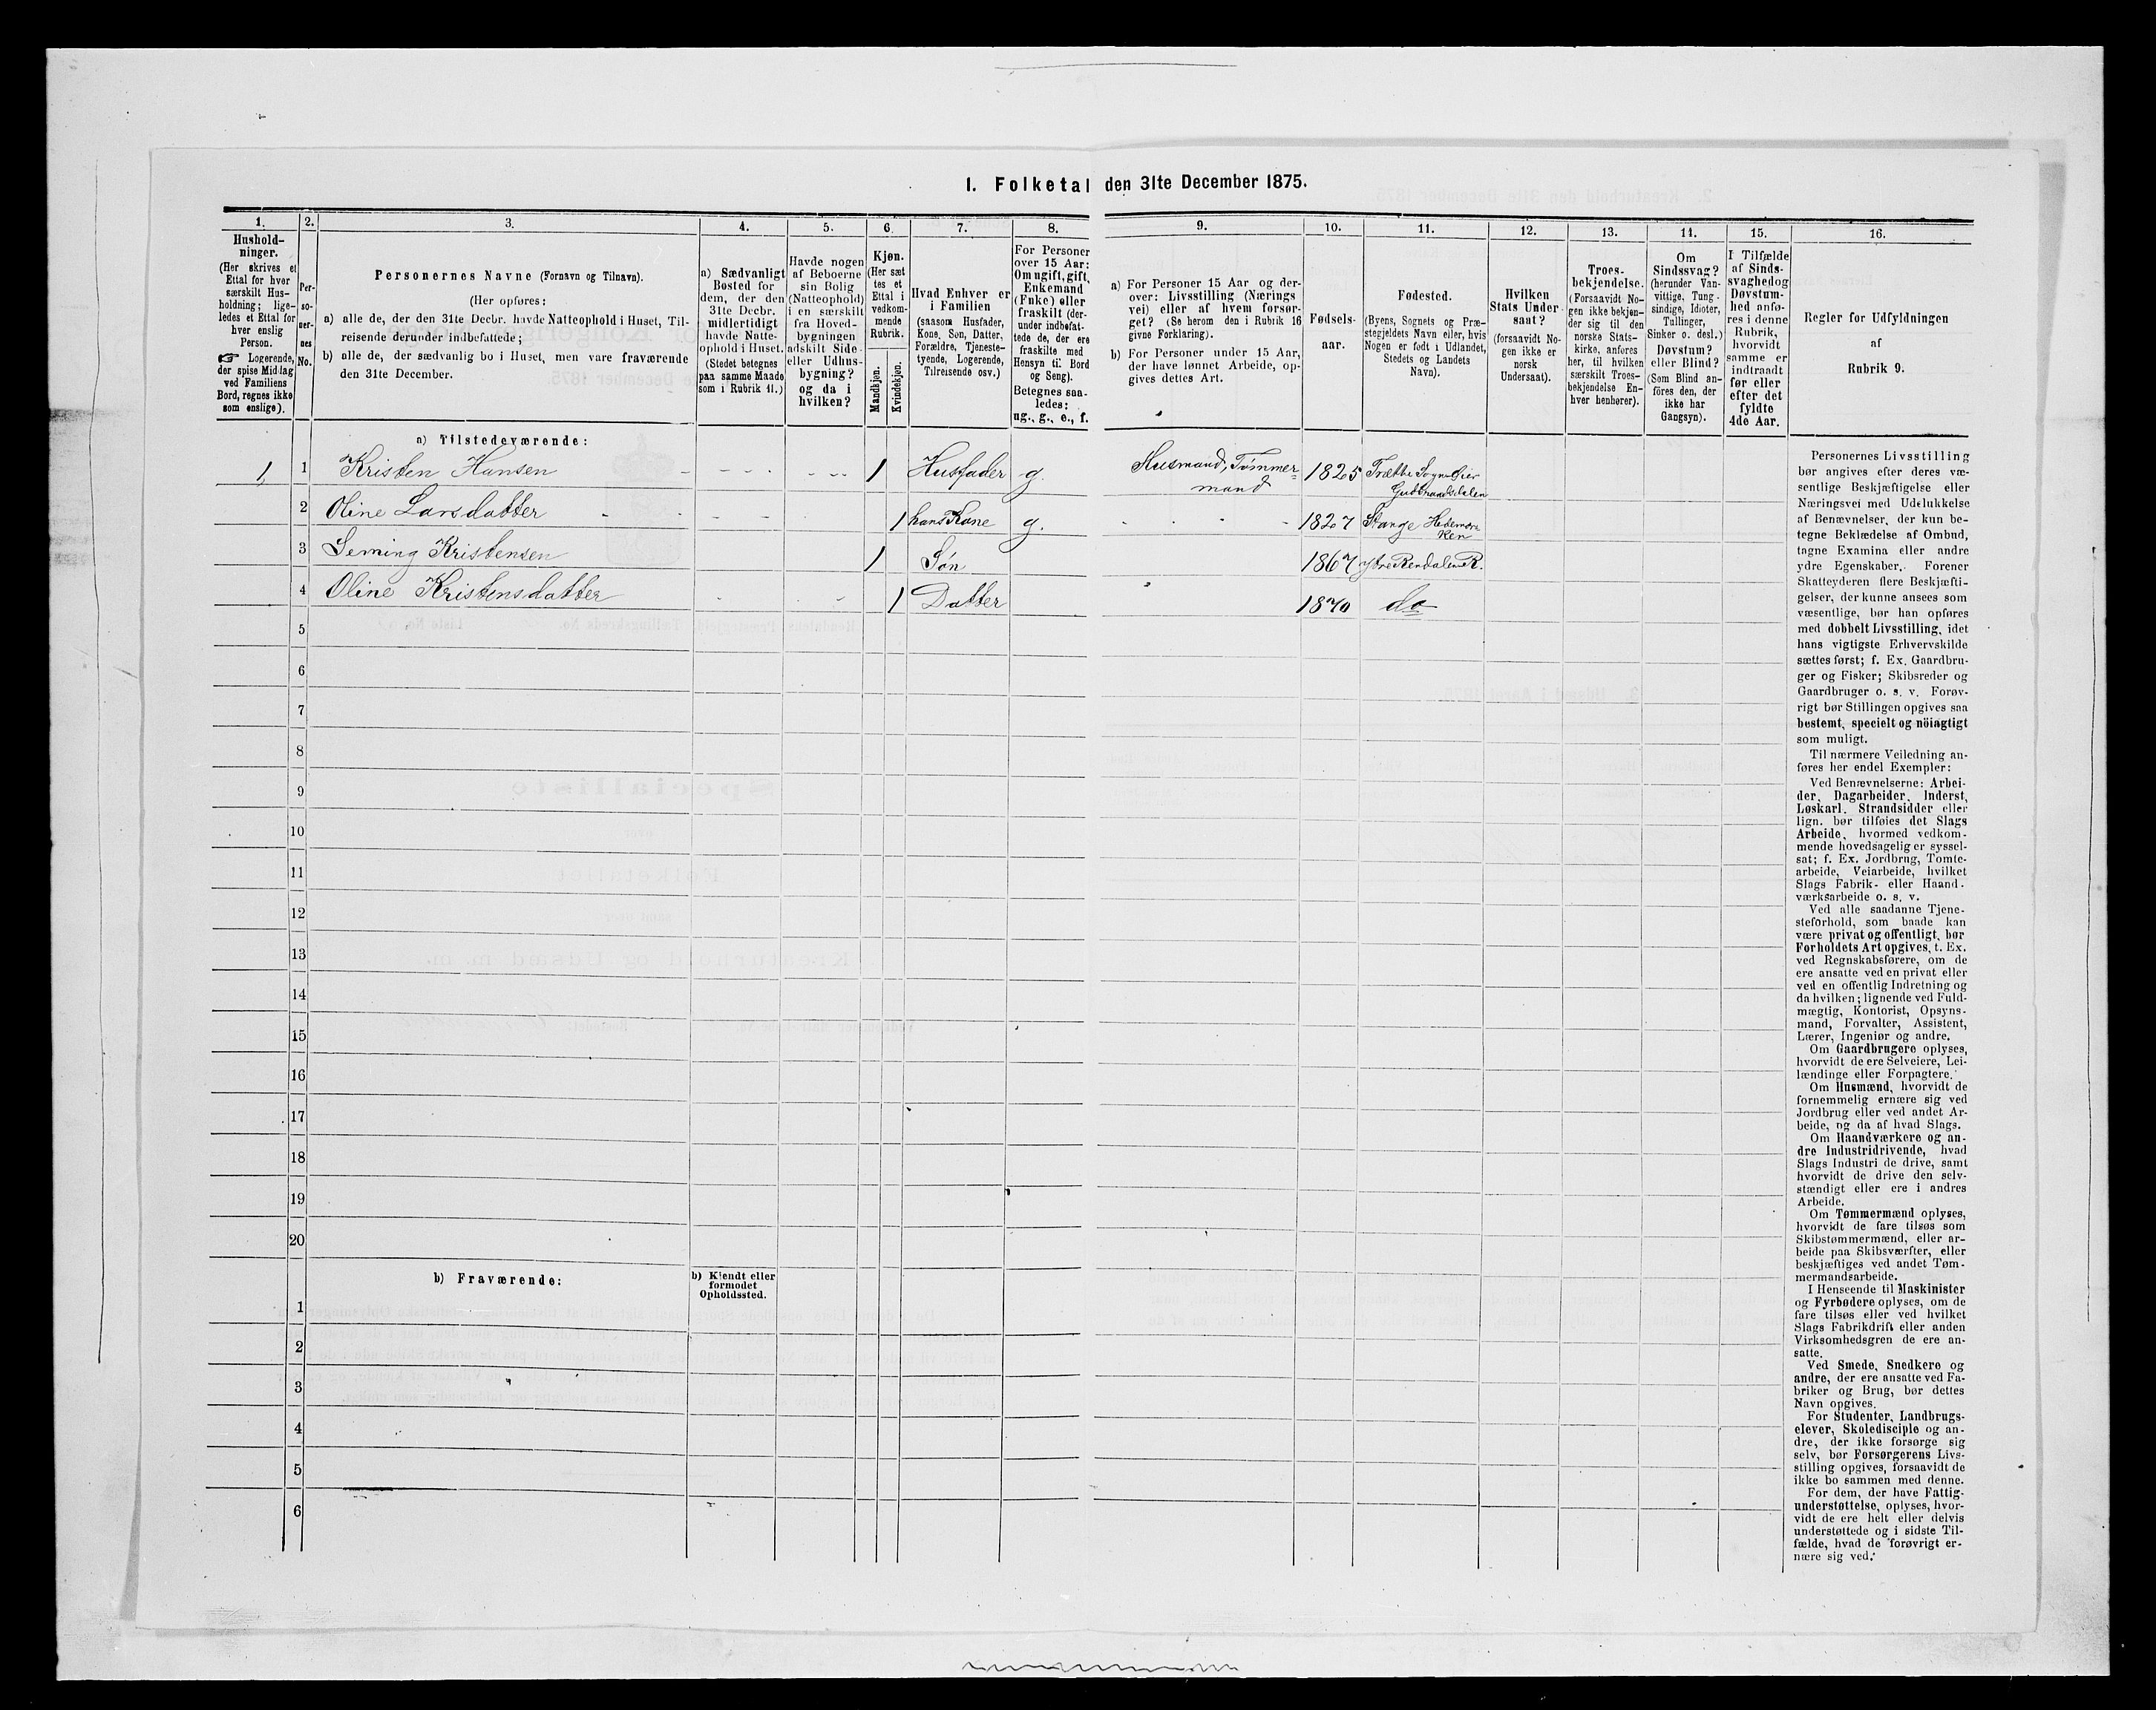 1. Folketal den 31te December 1875.
1.
Hushold-
ninger.
(Her skrives et
Ettal for hver
særskilt Hus-
holdning; lige-
ledes et Ettal for
hver enslig
Person.
☞ Logerende,
der spise Middag
ved Familiens
Bord, regnes ikke
som enslige).
2.
Per-
so-
ner-
nes
No.
3.
Personernes Navne (Fornavn og Tilnavn).
(Her opføres:
a) alle de, der den 31te Decbr. havde Natteophold i Huset, Til-
reisende derunder indbefattede;
b) alle de, der sædvanlig bo i Huset, men vare fraværende
den 31te December.
4.
a) Sædvanligt
Bosted for
dem, der den
31te Decbr.
midlertidigt
havde Natte-
ophold i Huset.
(Stedet betegnes
paa samme Maade
som i Rubrik 11.)
5.
Havde nogen
af Beboerne
sin Bolig
(Natteophold)
i en særskilt
fra Hoved-
bygningen
adskilt Side-
eller Udhus-
bygning?
og da i
hvilken?
6.
Kjøn.
(Her sæt
tes et
Ettal i
vedkom-
mende
Rubrik.
Mandkjøn.
Kvindekjøn.
7.
Hvad Enhver er
i Familien
(saasom Husfader,
Kone, Søn, Datter,
Forældre, Tjeneste-
tyende, Logerende,
Tilreisende osv.)
8.
For Personer
over 15 Aar:
Om ugift, gift,
Enkemand
(Enke) eller
fraskilt (der-
under indbefat-
tede de, der ere
fraskilte med
Hensyn til Bord
og Seng).
Betegnes saa-
ledes:
ug., g., e., f.
9.
a) For Personer 15 Aar og der-
over: Livsstilling (Nærings
vei) eller af hvem forsør-
get? (Se herom den i Rubrik 16
givne Forklaring).
b) For Personer under 15 Aar,
der have lønnet Arbeide, op-
gives dettes Art.
10.
Fødsels-
aar.
11.
Fødested.
(Byens, Sognets og Præ-
stegjeldets Navn eller, hvis
Nogen er født i Udlandet,
Stedets og Landets
Navn).
12.
Hvilken
Stats Under
saat?
(forsaavidt No-
gen ikke er
norsk
Undersaat).
13.
Troes-
bekjendelse.
(Forsaavidt No-
gen ikke bekjen-
der sig til den
norske Stats-
kirke, anføres
her, til hvilken
særskilt Troes-
bekjendelse En-
hver henhører).
14.
Om
Sindssvag?
(herunder Van-
vittige, Tung-
sindige, Idioter,
Tullinger,
Sinker o. desl.)
Døvstum?
eller Blind?
(Som Blind an-
føres den, der
ikke har
Gangsyn).
15.
I Tilfælde
af Sinds-
svaghed og
Døvstum-
hed anfø-
res i denne
Rubrik,
hvorvidt
samme er
indtraadt
før eller
efter det
fyldte
4de Aar.
16.
Regler for Udfyldningen
af
Rubrik 9.
a) Tilstedeværende:
1 1 Kristen Hansen 1 Husfader g. Husmand, Tømmer=
mand 1825 Gudbrandsdalen
2 Oline Larsdatter 1 hans Kone g. 1827 Stange Hedemar
ken
3 Leming Kristensen 1 Søn 1867 Ytre Rendalen R.
4 Oline Kristensdatter 1 Datter 1870 do
5
6
7
8
9
10
11
12
13
14
15
16
17
18
19
20
b) Fraværende:
b) Kjendt eller
formodet
Opholdssted.
1
2
3
4
5
6
Personernes Livsstilling
bør angives efter deres væ-
sentlige Beskjæftigelse eller
Næringsvei med Udelukkelse
af Benævnelser, der kun be-
tegne Beklædelse af Ombud,
tagne Examina eller andre
ydre Egenskaber. Forener
Skatteyderen flere Beskjæfti-
gelser, der kunne ansees som
væsentlige, bør han opføres
med dobbelt Livsstilling, idet
hans vigtigste Erhvervskilde
sættes først; f. Ex. Gaardbru-
ger og Fisker; Skibsreder og
Gaardbruger o. s. v. Forøv-
rigt bør Stillingen opgives saa
bestemt, specielt og nöiagtigt
som muligt.
Til nærmere Veiledning an-
føres her endel Exempler:
Ved Benævnelserne: Arbei-
der, Dagarbeider, Inderst,
Løskarl, Strandsidder eller
lign. bør tilføies det Slags
Arbeide, hvormed vedkom-
mende hovedsagelig er syssel-
sat; f. Ex. Jordbrug, Tomte-
arbeide, Veiarbeide, hvilket
Slags Fabrik- eller Haand-
værksarbeide o. s. v.
Ved alle saadanne Tjene-
steforhold, som baade kan
være privat og offentligt, bør
Forholdets Art opgives, t. Ex.
ved Regnskabsførere, om de
ere ansatte ved en privat eller
ved en offentlig Indretning og
da hvilken; lignende ved Fuld-
mægtig, Kontorist, Opsyns-
mand, Forvalter, Assistent,
Lærer, Ingeniør og andre.
Om Gaardbrugere oplyses,
hvorvidt de ere Selveiere, Lei-
lændinge eller Forpagtere.
Om Husmænd, hvorvidt de
fornemmelig ernære sig ved
Jordbrug eller ved andet Ar-
beide, og da af hvad Slags.
Om Haandværkere og an-
dre Industridrivende, hvad
Slags Industri de drive, samt
hvorvidt de drive den selv-
stændigt eller ere i andres
Arbeide.
Om Tømmermænd oplyses,
hvorvidt de fare tilsøs som
Skibstømmermænd, eller ar-
beide paa Skibsværfter, eller
beskjæftiges ved andet Tøm-
mermandsarbeide.
I Henseende til Maskinister
og Fyrbødere oplyses, om de
fare tilsøs eller ved hvilket
Slags Fabrikdrift eller anden
Virksomhedsgren de ere an-
satte.
Ved Smede, Snedkere og
andre, der ere ansatte ved Fa-
briker og Brug, bør dettes
Navn opgives.
For Studenter, Landbrugs-
elever, Skoledisciple og an-
dre, der ikke forsørge sig
selv, bør Forsørgerens Livs-
stilling opgives, forsaavidt de
ikke bo sammen med denne.
For dem, der have Fattig-
understøttelse, oplyses, hvor-
vidt de ere helt eller delvis
understøttede og i sidste Til-
fælde, hvad de forøvrigt er-
nære sig ved.